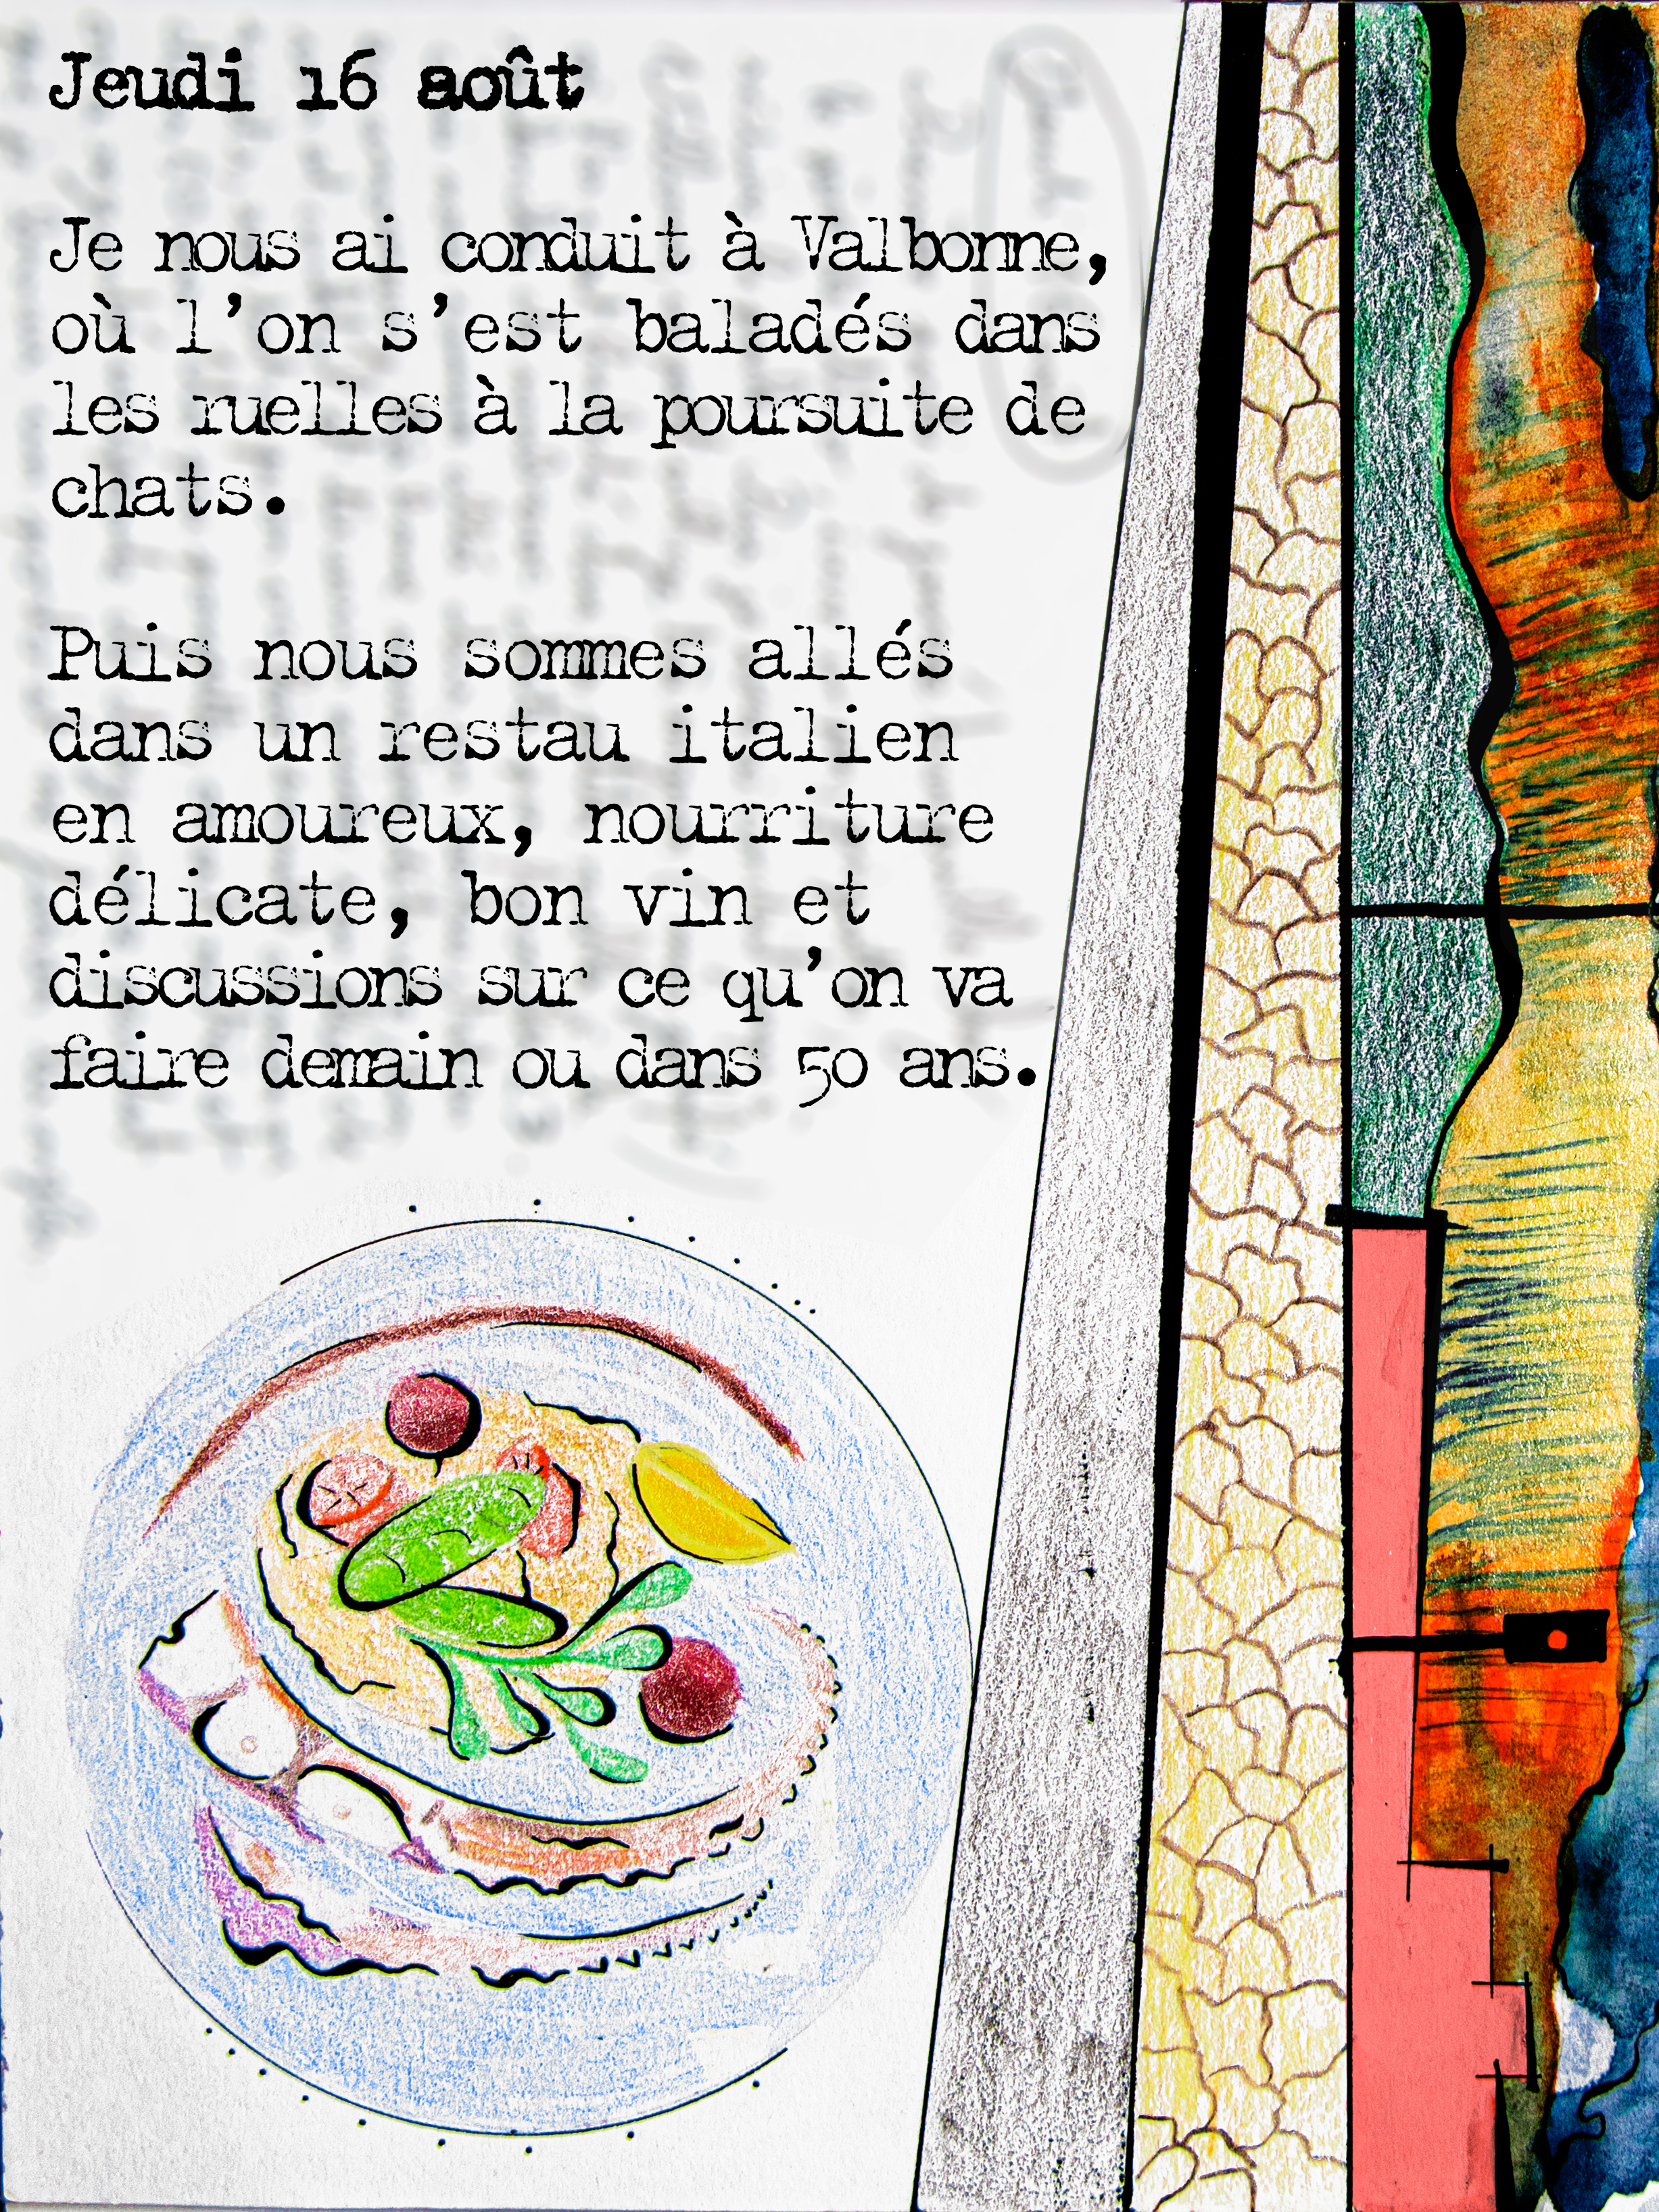 Jeudi 16 août
Je nous ai conduit à Valbonne,
où l'on s'est baladés dans
les ruelles à la poursuite de
chats.
Puis nous sommes allés
dans un restau italien
en amoureux, nourriture
délicate, bon vin et
discussions sur ce qu'on va
faire demain ou dans 50 ans.